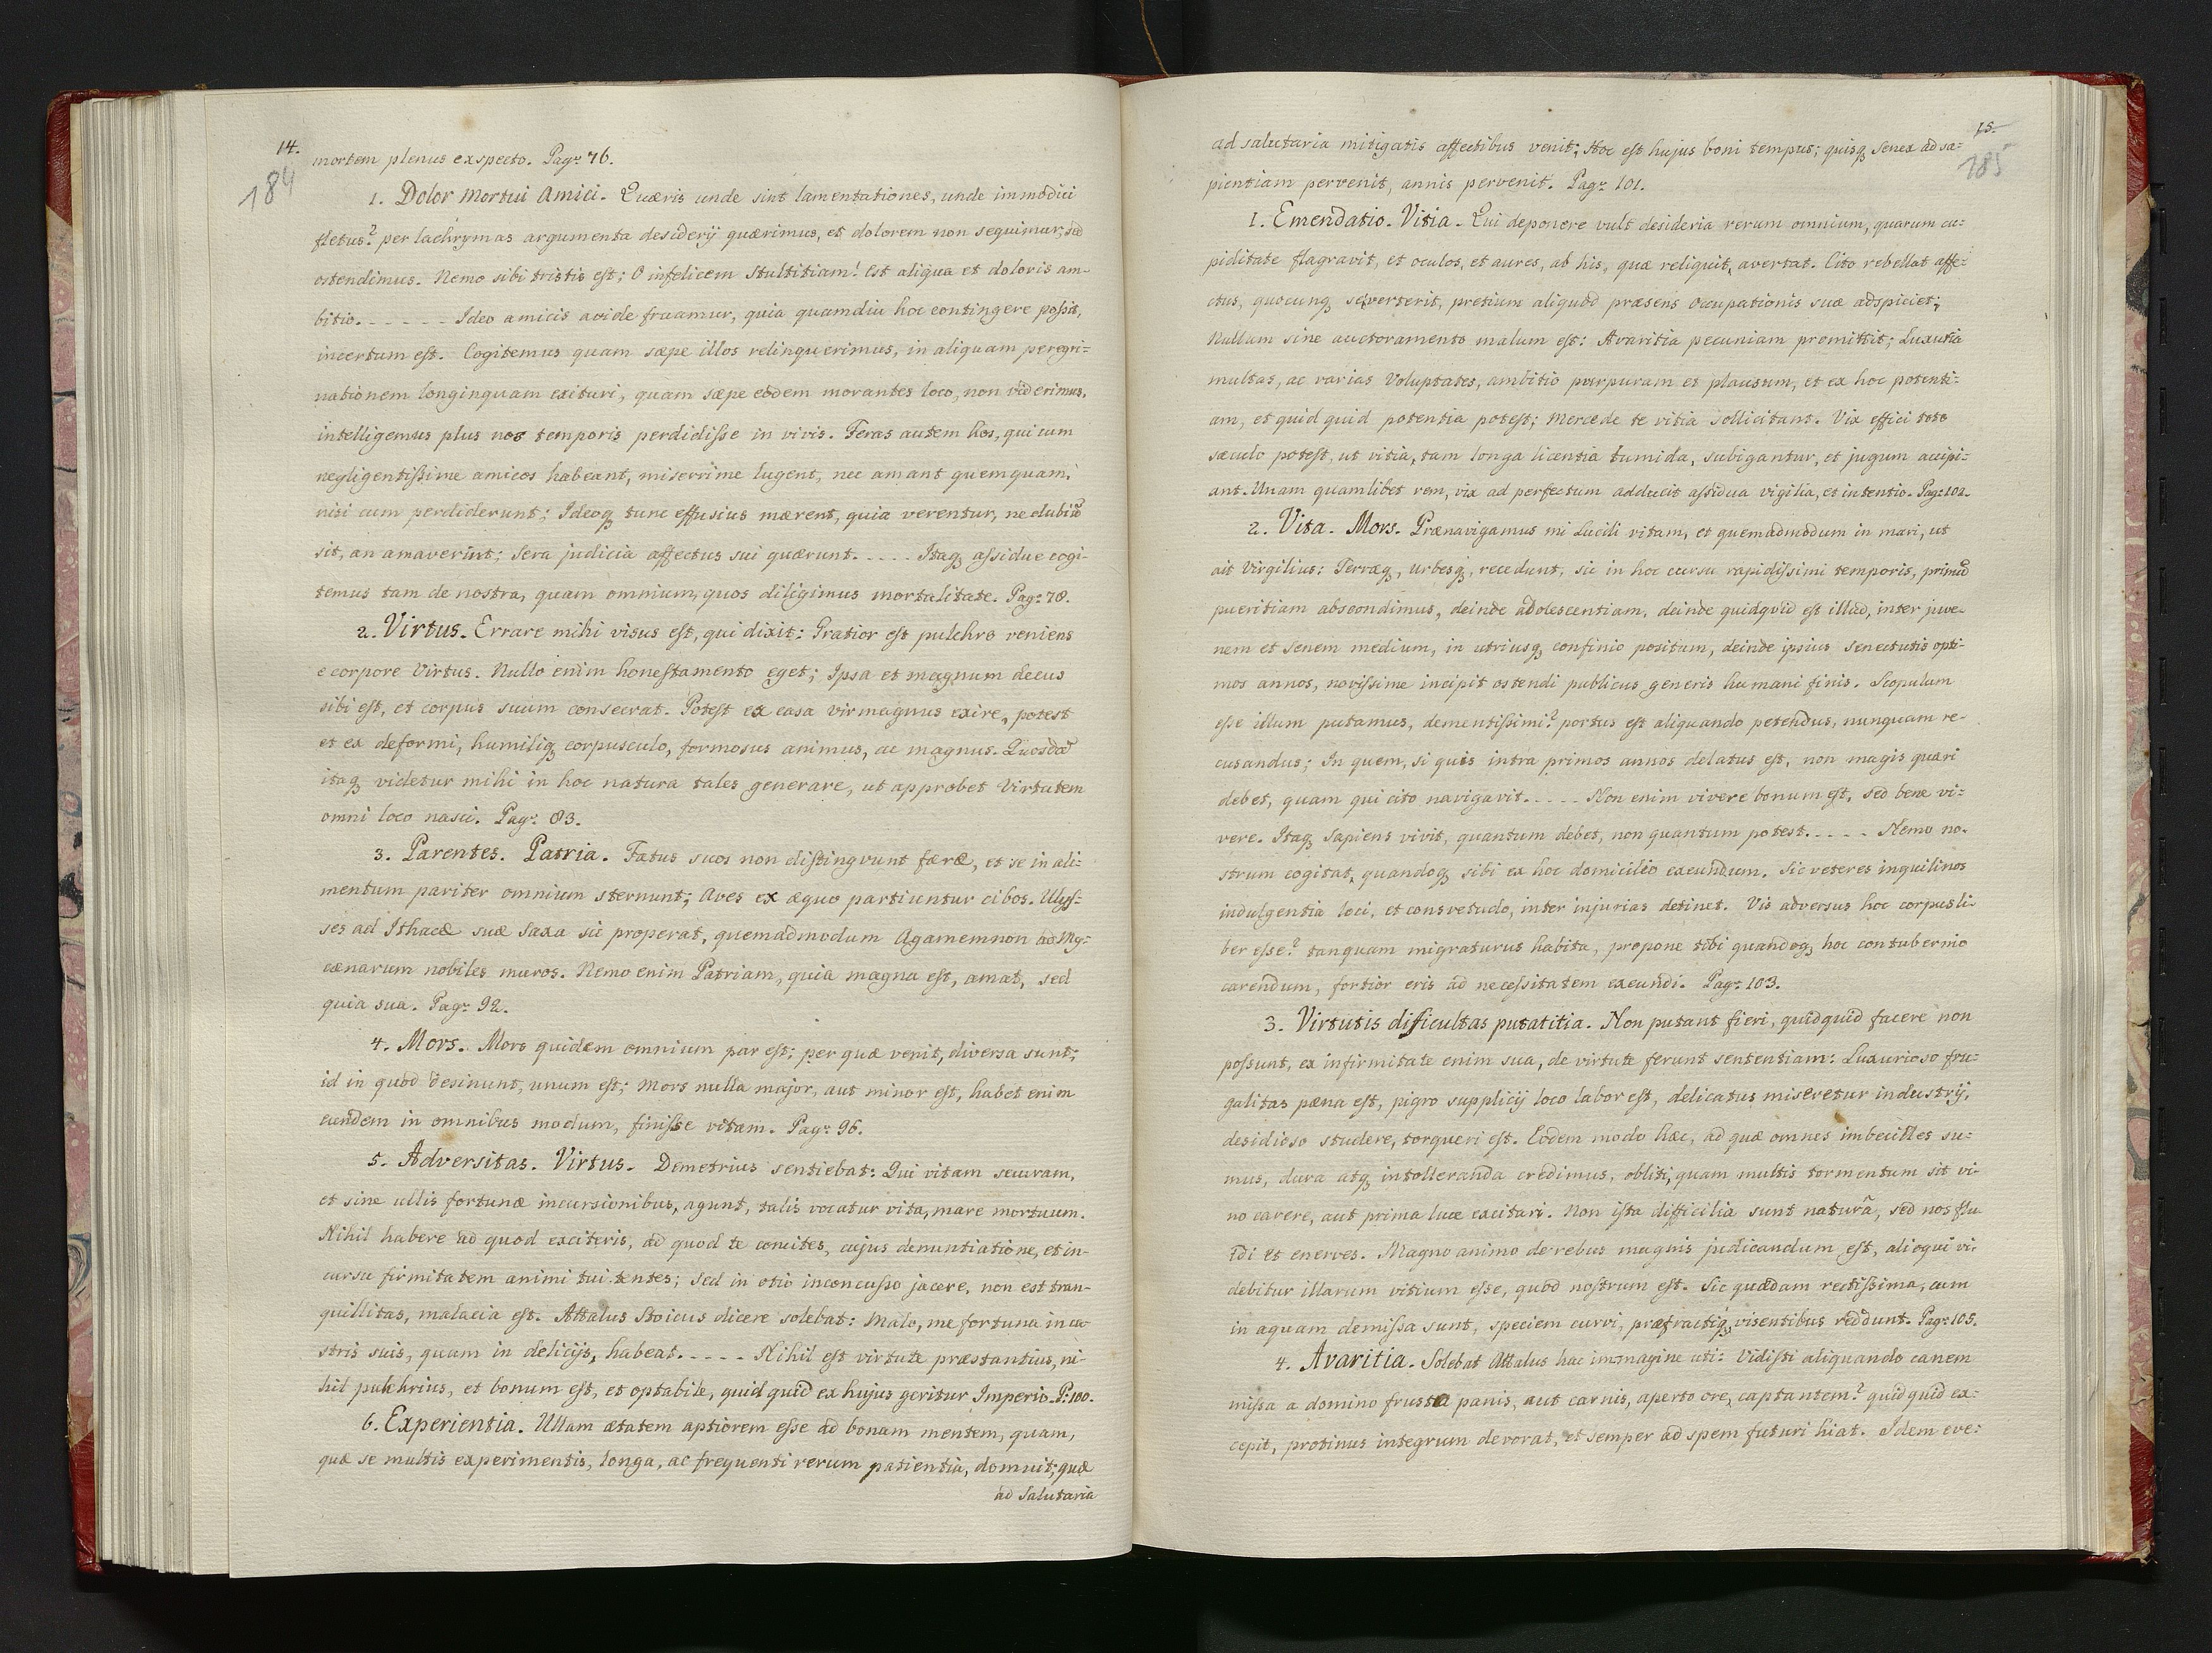 14.
184
mortem plenus exspecto. Pag: 76.
1. Dolor Mortui Amici. Quæris unde sint lamentationes, unde immodici
fletus? per lachrymas argumenta desiderij quærimus, et dolorem non sequimur, sed
ostendimus. Nemo sibi tristis est; O infelicem Stultitiam! est aliqua et doloris am-
bitio. _ _ _ _ _ Ideo amicis avide fruamur, quia quamdiu hoc contingere possit,
incertum est. Cogitemus quam sæpe illos relinquerimus, in aliquam peregri-
nationem longinquam exituri, quam sæpe eodem morantes loco, non viderimus.
intelligemus plus nos temporis perdidisse in vivis. Feras autem hos, qui cum
negligentissime amicos habeant, miserrime lugent, nec amant quemquam,
nisi cum perdiderunt; Ideoq tunc effusius mærent, quia verentur, ne dubiũ
sit, an amaverint; Sera judicia affectus sui quærunt. _ _ _ _ Itaq assidue cogi-
temus tam de nostra, quam omnium, quos diligimus mortalitate. Pag: 78.
2. Virtus. Errare mihi visus est, qui dixit: Gratior est pulchro veniens
e corpore Virtus. Nullo enim honestamento eget; Ipsa et magnum decus
sibi est, et corpus suum consecrat. Potest ex casa vir magnus exire, potest
et ex deformi, humiliq corpusculo, formosus animus, ac magnus. Quosdã
itaq videtur mihi in hoc natura tales generare, ut approbet Virtutem
omni loco nasci. Pag: 83.
3. Parentes. Patria. Fætus suos non distingvunt færæ, et se in ali-
mentum pariter omnium sternunt; Aves ex æquo partiuntur cibos. Ulys-
ses ad Ithacæ suæ Saxa sic properat, quemadmodum Agamemnon ad My-
cænarum nobiles muros. Nemo enim Patriam, quia magna est, amat, sed
quia sua. Pag: 92.
4. Mors. Mors quidem omnium par est; per quæ venit, diversa sunt;
id in quod desinunt, unum est; Mors nulla major, aut minor est, habet enim
eundem in omnibus modum, finisse vitam. Pag: 96.
5. Adversitas. Virtus. Demetrius sentiebat: Qui vitam securam,
et sine ullis fortunæ incursionibus, agunt, talis vocatur vita, mare mortuum.
Nihil habere ad quod exciteris, ad quod te concites, cujus denuntiatione, et in-
cursu firmitatem animi tui tentes; Sed in otio inconcusso jacere, non est tran-
quillitas, malacia est. Attalus Stoicus dicere solebat: Malo, me fortuna in ca-
stris suis, quam in delicijs, habeat. _ _ _ _ Nihil est virtute præstantius, ni-
hil pulchrius, et bonum est, et optabile, quid quid ex hujus geritur Imperio. P: 100.
6. Experientia. Ullam ætatem aptiorem esse ad bonam mentem, quam,
quæ se multis experimentis, longa, ac frequenti rerum patientia, domuit; quæ
ad Salutaria
15.
185
ad salutaria mitigatis affectibus venit; Hoc est hujus boni tempus; quisq Senex ad sa-
pientiam pervenit, annis pervenit. Pag: 101.
1. Emendatio. Vitia. Qui deponere vult desideria rerum omnium, quarum cu-
piditate flagravit, et oculos, et aures, ab his, quæ reliquit, avertat. Cito rebellat affe-
ctus, quocunq se verterit, pretium aliquod præsens occupationis suæ adspiciet;
Nullum sine auctoramento malum est: Avaritia pecuniam promittit; Luxuria
multas, ac varias Voluptates, ambitio purpuram et plausum, et ex hoc potenti-
am, et quid quid potentia potest; Mercede te vitia sollicitant. Vix effici toto
sæculo potest, ut vitia, tam longa licentia tumida, subigantur, et jugum accipi-
ant. Unam quamlibet rem, vix ad perfectum adducit assidua vigilia, et intentio. Pag: 102.
2. Vita. Mors. Prænavigamus mi Lucili vitam, et quemadmodum in mari, ut
ait Virgilius: Terræq, urbesq, recedunt, sic in hoc cursu rapidissimi temporis, primũ
pueritiam abscondimus, deinde adolescentiam, deinde quidqvid est illud, inter juve-
nem et Senem medium, in utriusq confinio positum, deinde ipsius Senectutis opti-
mos annos, novissime incipit ostendi publicus generis humani finis. Scopulum
esse illum putamus, dementissimi? portus est aliquando petendus, nunquam re-
cusandus; In quem, si quis intra primos annos delatus est, non magis quæri
debet, quam qui cito navigavit. _ _ _ _ Non enim vivere bonum est, sed bene vi-
vere. Itaq Sapiens vivit, quantum debet, non quantum potest. _ _ _ _ Nemo no-
strum cogitat, quandoq sibi ex hoc domicilio exeundum. Sic veteres inquilinos
indulgentia loci, et consvetudo, inter injurias detinet. Vis adversus hoc corpus li-
ber esse? tanquam migraturus habita, propone tibi quandoq hoc contubernio
carendum, fortior eris ad necessitatem exeundi. Pag: 103.
3. Virtutis dificultas putatitia. Non putant fieri, quidquid facere non
possunt, ex infirmitate enim sua, de virtute ferunt sententiam: Luxurioso fru-
galitas pæna est, pigro supplicij loco labor est, delicatus miseretur industrij,
desidioso studere, torqueri est. Eodem modo hæc, ad quæ omnes imbecilles su-
mus, dura atq intolleranda credimus, obliti, quam multis tormentum sit vi-
no carere, aut prima luce excitari. Non ista difficilia sunt naturâ, sed nos flu-
idi et enerves. Magno animo de rebus magnis judicandum est, alioqui vi-
debitur illarum vitium esse, quod nostrum est. Sic quædam rectissima, cum
in aquam demissa sunt, speciem curvi, præfractiq visentibus reddunt. Pag: 105.
4. Avaritia. Solebat Attalus hac immagine uti: Vidisti aliquando canem
missa a domino frusta panis, aut carnis, aperto ore, captantem? quidquid ex-
cepit, protinus integrum devorat, et semper ad spem futuri hiat. Idem eve-